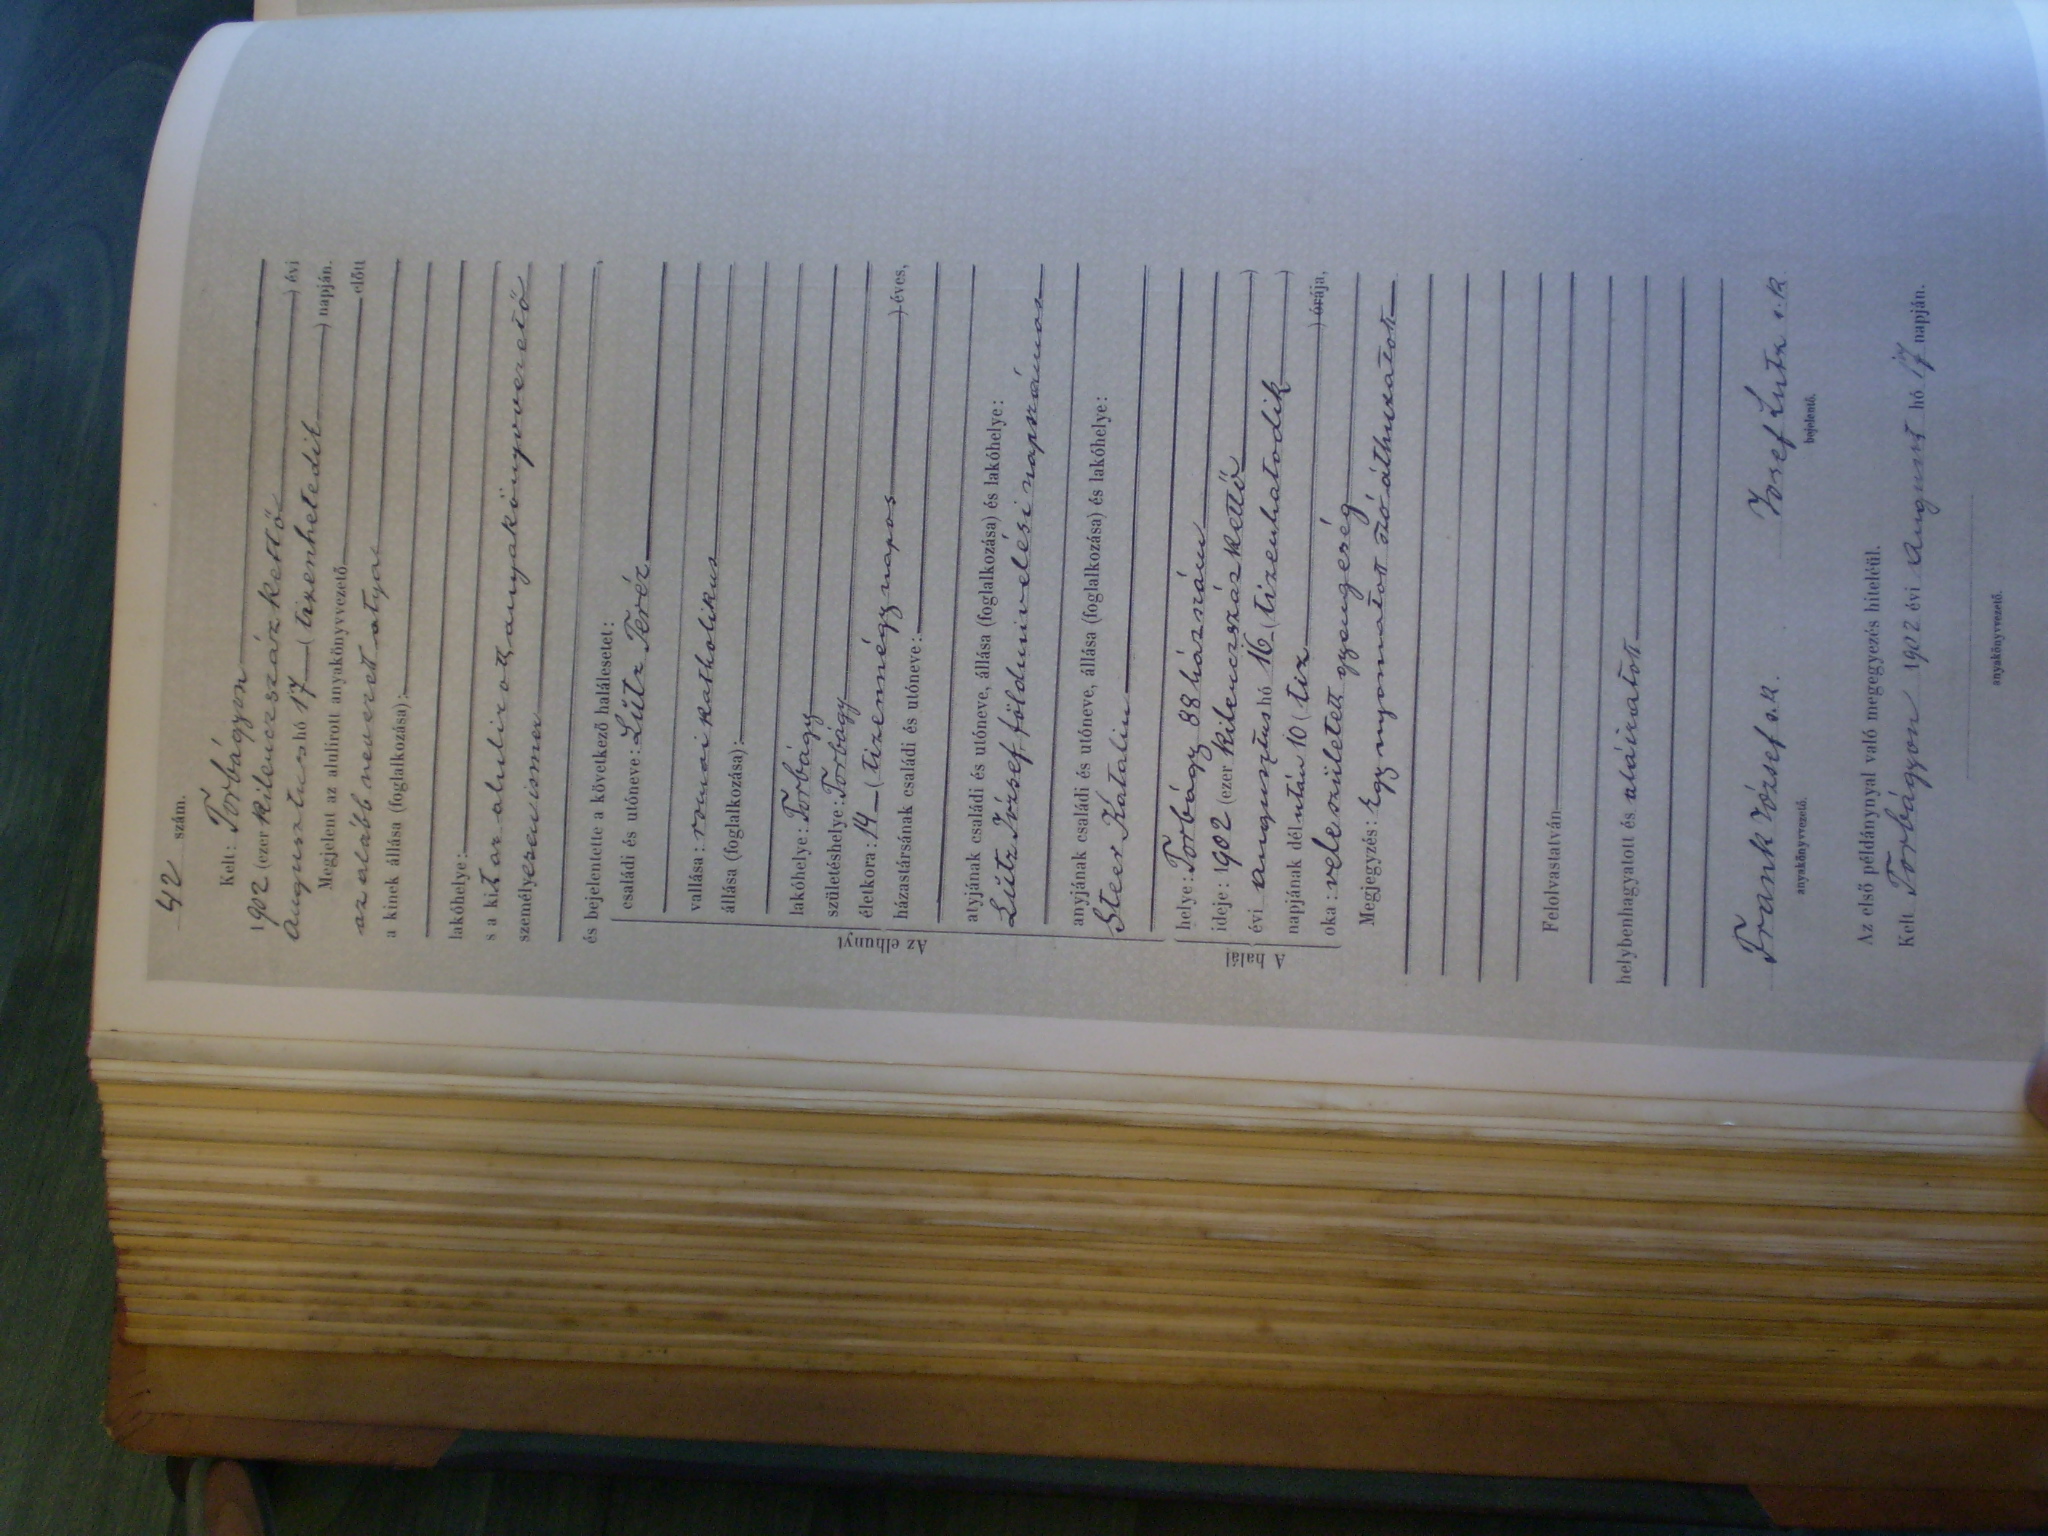 42 szám.
Kelt: Torbágyon
1902 (ezer kilenczszázkettő ) évi
Augusztus hó 17 (tizenhetedik ) napján.
Megjelent az alulirott anyakönyvvezető előtt
az alább nevezett atya
a kinek állása (foglalkozása):
lakóhelye:
s a kit az alulirott anyakönyvvezető
személyesen ismer
és bejelentette a következő halálesetet:
Az elhunyt
családi és utóneve: Lütz Teréz
vallása: római katholikus
állása (foglalkozása):
lakóhelye: Torbágy
születéshelye: Torbágy
életkora: 14 (tizennégy napos ) éves,
házastársának családi és utóneve:
atyjának családi és utóneve, állása (foglalkozása) és lakóhelye:
Lütz József földmivelési napszámos
anyjának családi és utóneve, állása (foglalkozása) és lakóhelye:
Steer Katalin
A halál
helye: Torbágy 88 házszám
ideje: 1902 (ezer kilenczszázkettő )
évi augusztus hó 16 (tizenhatodik )
napjának dél után 10 (tiz ) órája,
oka: veleszületett gyengeség
Megjegyzés: Egy nyomatott szó áthuzatott
Felolvastatván
helybenhagyatott és aláiratott
Frank József s.k. Josef Lutz s.k.
anyakönyvvezető. bejelentő.
Az első példánynyal való megegyezés hiteléül.
Kelt Torbágyon 1902 évi August hó 17 napján.
anyakönyvvezető.